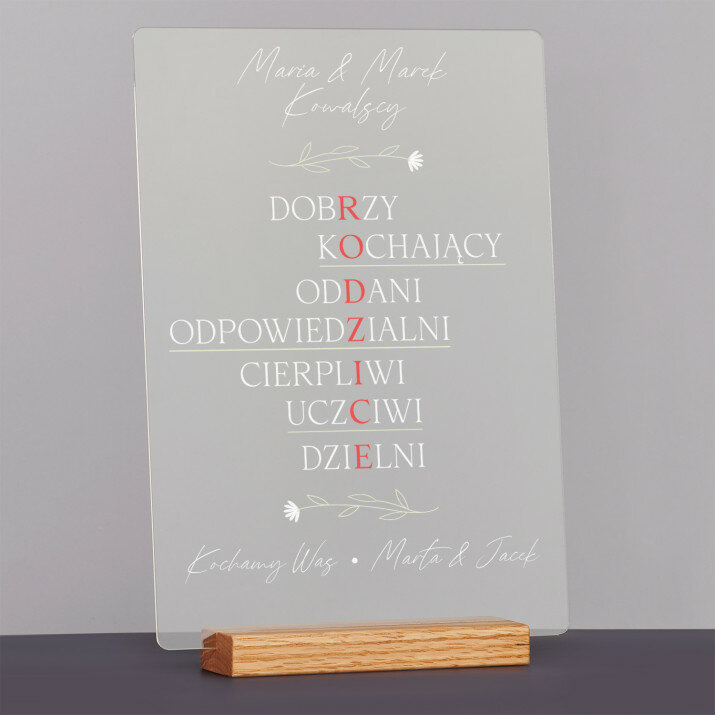 Maria & Marek
Kowalscy
DOBRZY
KOCHAJĄCY
ODDANI
ODPOWIEDZIALNI
CIERPLIWI
UCZCIWI
DZIELNI
Kochamy Was • Marta & Jacek